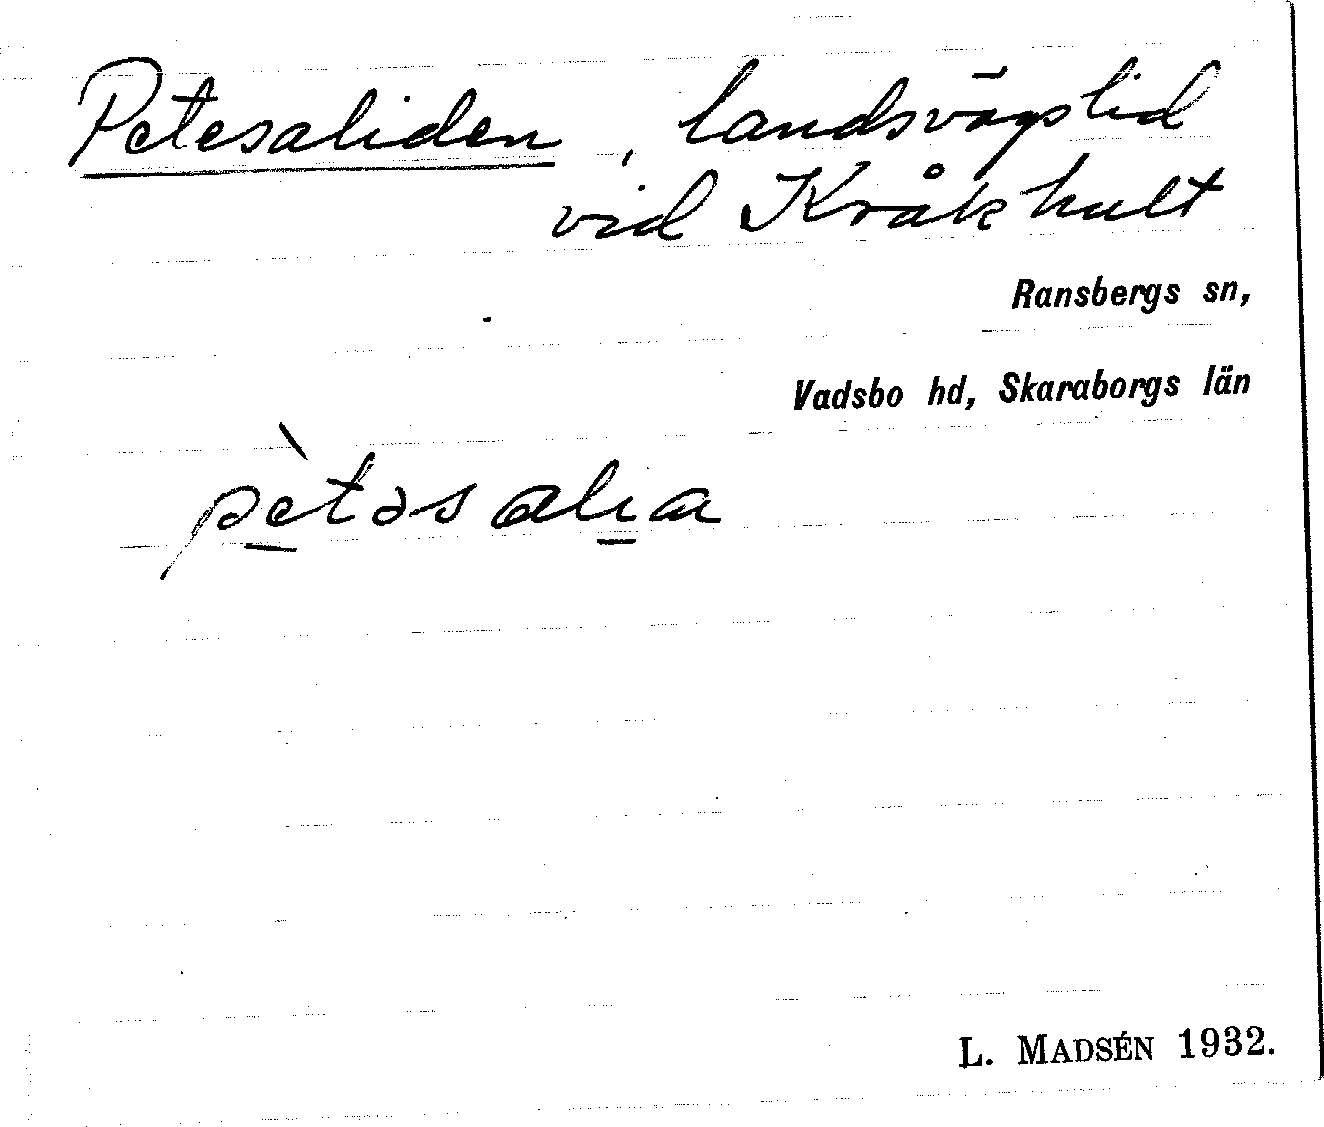 Petesaliden, landsvägslid
vid Kråkhult
Ransbergs sn,
Vadsbo hd, Skaraborgs län
pèt̀əsalia
L. MADSÉN 1932.